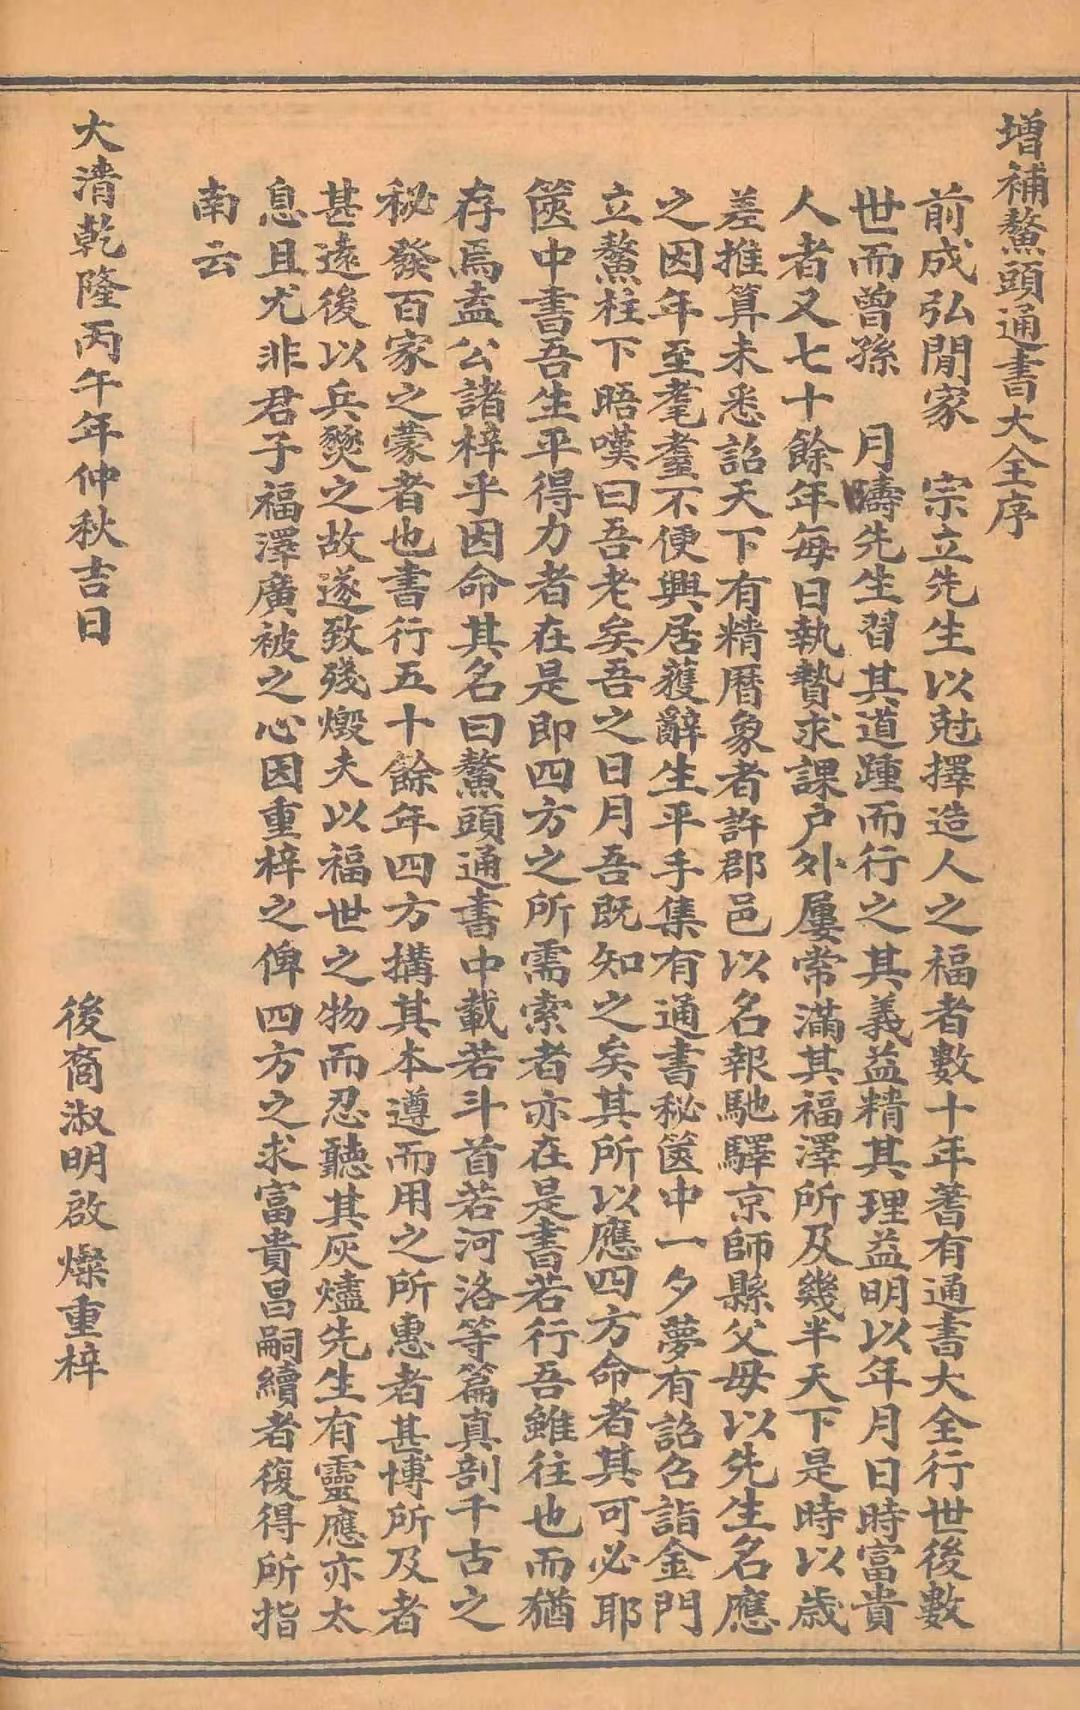 增補鰲頭通書大全序
前成弘閒家　宗立先生以尅擇造人之福者數十年著有通書大全行世後數
世而曾孫　月疇先生習其道踵而行之其義益精其理益明以年月日時富貴
人者又七十餘年每日執贄求課户外屢常滿其福澤所及幾半天下是時以歲
差推算未悉詔天下有精曆象者許郡邑以名報馳驛京師縣父母以先生名應
之因年至耄耋不便興居獲辭生平手集有通書秘篋中一夕夢有詔召詣金門
立鰲柱下晤嘆曰吾老矣吾之日月吾既知之矣其所以應四方命者其可必耶
篋中書吾生平得力者在是即四方之所需索者亦在是書若行吾雖往也而猶
存焉盍公諸梓乎因命其名曰鰲頭通書中載若斗首若河洛等篇真剖千古之
秘發百家之蒙者也書行五十餘年四方搆其本遵而用之所惠者甚博所及者
甚遠後以兵燹之故遂致殘燬夫以福世之物而忍聽其灰燼先生有靈應亦太
息且尤非君子福澤廣被之心因重梓之俾四方之求富貴昌嗣續者復得所指
南云
大清乾隆丙午年仲秋吉日
後裔淑明啟燦重梓